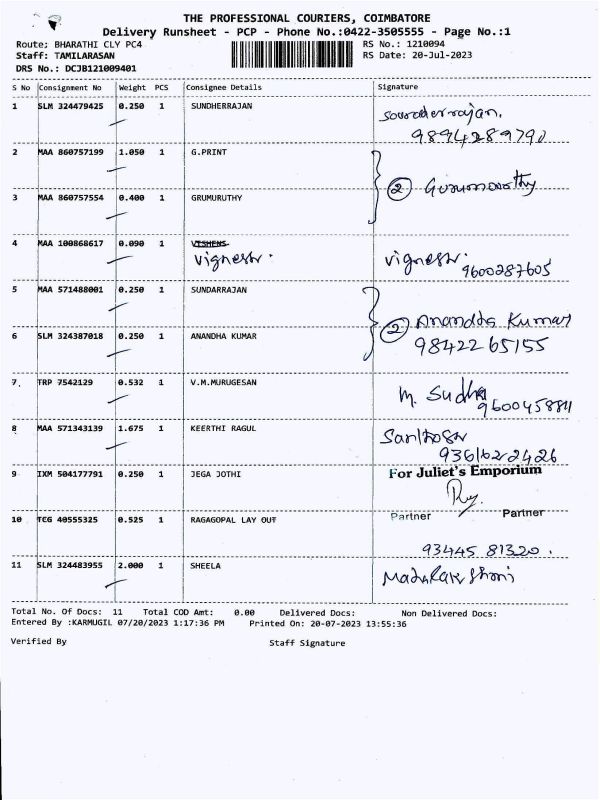 THE PROFESSIONAL COURIERS, COIMBATORE
Delivery Runsheet - PCP - Phone No.:0422-3505555 - Page No.:1
Route; BHARATHI CLY PC4 RS No.: 1210094
Staff: TAMILARASAN RS Date: 20-Jul-2023
DRS No.: DCJB121009401
S No Consignment No Weight PCS Consignee Details Signature
1 SLM 324479425 0.250 1 SUNDHERRAJAN
9894289790
2 MAA 860757199 1.050 1 G.PRINT
② Gurumoorthy
3 MAA 860757554 0.400 1 GRUMURUTHY
4 MAA 100868617 0.090 1 VISHENS
Vignesh. Vignesh.
9600287605
5 MAA 571488001 0.250 1 SUNDARRAJAN
② Anandha Kumar
6 SLM 324387018 0.250 1 ANANDHA KUMAR
98422 65155
7 TRP 7542129 0.532 1 V.M.MURUGESAN
M. Sudha
8 MAA 571343139 1.675 1 KEERTHI RAGUL
Santhosh
9361622426
9 IXM 504177791 0.250 1 JEGA JOTHI
For Juliet's Emporium
Partner Partner
10 TCG 40555325 0.525 1 RAGAGOPAL LAY OUT
93445 81320.
11 SLM 324483955 2.000 1 SHEELA
Total No. Of Docs: 11 Total COD Amt: 0.00 Delivered Docs: Non Delivered Docs:
Entered By :KARMUGIL 07/20/2023 1:17:36 PM Printed On: 20-07-2023 13:55:36
Verified By Staff Signature